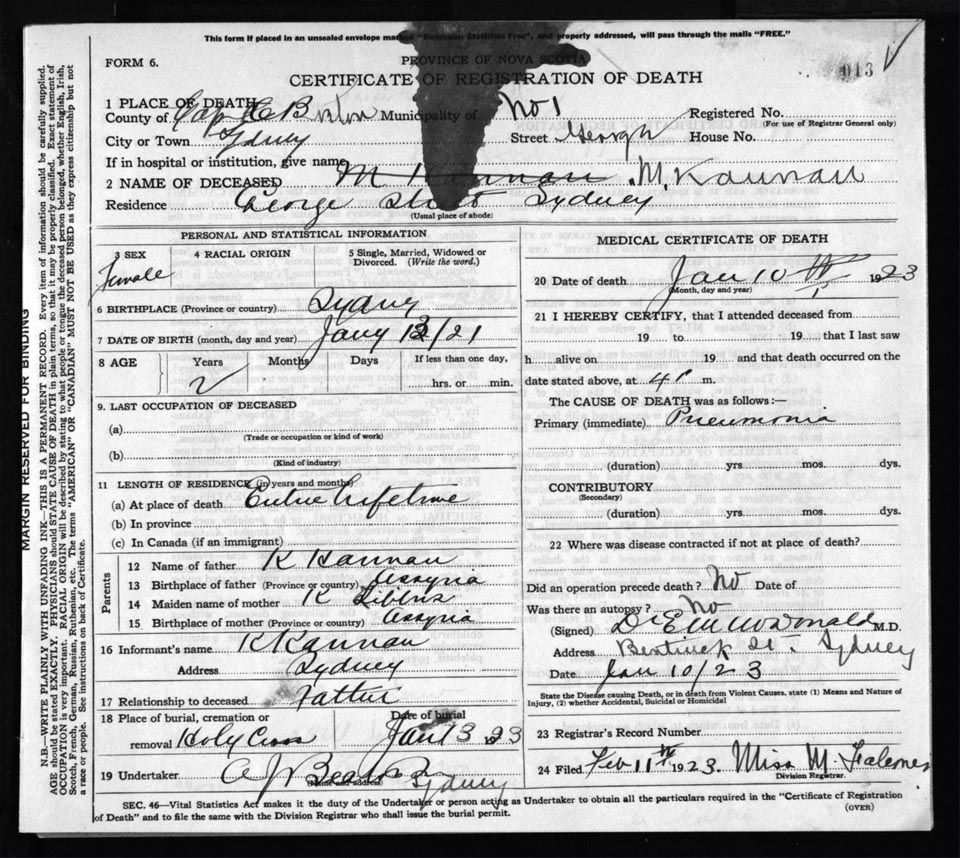 This form if placed in an unsealed envelope marked "Dominion Statistics Free", and properly addressed, will pass through the mails "FREE."
FORM 6.
PROVINCE OF NOVA SCOTIA
013
CERTIFICATE OF REGISTRATION OF DEATH
1 PLACE OF DEATH
County of Cape Breton Municipality of No 1 Registered No.
(For use of Registrar General only)
City or Town Sydney Street George House No.
If in hospital or institution, give name
2 NAME OF DECEASED M Kannan M. Kannan
Residence George Street Sydney
(Usual place of abode)
PERSONAL AND STATISTICAL INFORMATION
3 SEX 4 RACIAL ORIGIN 5 Single, Married, Widowed or Divorced. (Write the word.)
Female
6 BIRTHPLACE (Province or country) Sydney
7 DATE OF BIRTH (month, day and year) Jany /21
8 AGE Years Months Days If less than one day,
2 hrs. or min.
9. LAST OCCUPATION OF DECEASED
(a)
(Trade or occupation or kind of work)
(b)
(Kind of industry)
11 LENGTH OF RESIDENCE (in years and months)
(a) At place of death Entire Lifetime
(b) In province
(c) In Canada (if an immigrant)
Parents
12 Name of father K Kannan
13 Birthplace of father (Province or country) Assyria
14 Maiden name of mother K
15 Birthplace of mother (Province or country) Assyria
16 Informant's name K Kannan
Address Sydney
17 Relationship to deceased Father
18 Place of burial, cremation or Date of burial
removal Holy Cross Jan 13 1923
19 Undertaker A J Sydney
(Name and address)
MEDICAL CERTIFICATE OF DEATH
20 Date of death Jan 10 th 1923
(Month, day and year)
21 I HEREBY CERTIFY, that I attended deceased from
19 to 19 that I last saw
h alive on 19 and that death occurred on the
date stated above, at 4 P m.
The CAUSE OF DEATH was as follows:—
Primary (immediate) Pneumonia
(duration) yrs. mos. dys.
CONTRIBUTORY
(Secondary)
(duration) yrs. mos. dys.
22 Where was disease contracted if not at place of death?
Did an operation precede death? No Date of
Was there an autopsy? No
(Signed) Dr E M McDonald M.D.
Address St. Sydney
Date Jan 10/23
State the Disease causing Death, or in death from Violent Causes, state (1) Means and Nature of
Injury, (2) whether Accidental, Suicidal or Homicidal
23 Registrar's Record Number
24 Filed Feb 11th 1923. Miss M.
Division Registrar.
SEC. 46—Vital Statistics Act makes it the duty of the Undertaker or person acting as Undertaker to obtain all the particulars required in the "Certificate of Registration
of Death" and to file the same with the Division Registrar who shall issue the burial permit. (OVER)
MARGIN RESERVED FOR BINDING
N.B.—WRITE PLAINLY WITH UNFADING INK—THIS IS A PERMANENT RECORD. Every item of information should be carefully supplied.
AGE should be stated EXACTLY. PHYSICIANS should STATE CAUSE OF DEATH in plain terms, so that it may be properly classified. Exact statement of
OCCUPATION is very important. RACIAL ORIGIN will be described by stating to what people or tongue the deceased person belonged, whether English, Irish,
Scotch, French, German, Russian, Ruthenian, etc. The terms "AMERICAN" OR "CANADIAN" MUST NOT BE USED as they express citizenship but not
a race or people. See instructions on back of Certificate.